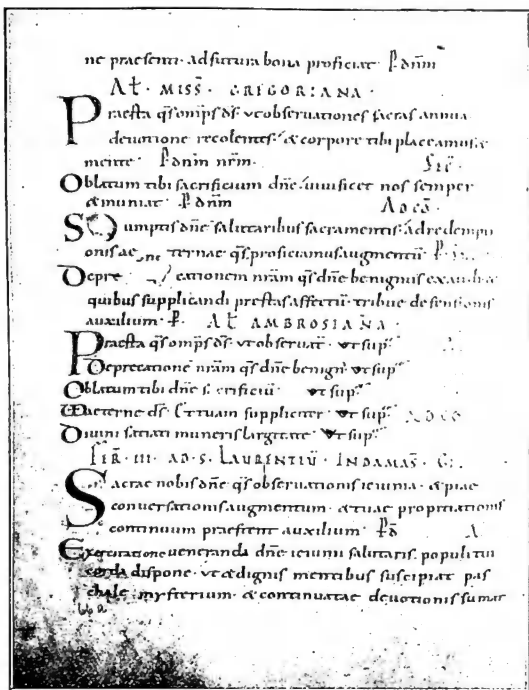 ne praesenti· ad futura bona proficiat· P dnm
At· MISS· GREGORIANA·
Praesta qs omps ds· ut observationes sacras annua
devotione recolentes· & corpore tibi placeamus &
mente· P dnm nrm·
Oblatum tibi sacrificium dne· vivificet nos semper
& muniat· P dnm AD CO
Sumptis dne salutaribus sacramentis· ad redempti
onis aeternae qs proficiamus augmentu· P
Deprecationem nram qs dne benignus exaudi &
quibus supplicandi prestas affectu· tribue defensionis
auxilium· P· At AMBROSIANA·
Praesta qs omps ds· ut observat· ut sup
Deprecatione nram qs dne benign· ut sup
Oblatum tibi dne s erificiu ut sup
aeterne ds· Et tuam suppliciter· ut sup AD CO
Divini satiati muneris largitate· ut sup
FER· III· AD· S· LAURENTIU· IN DAMAS·
Sacrae nobis dne qs observationis ieiunia· & piae
conversationis augmentum· & tuae propitiationis
continuum praestent auxilium· P d
Exercitatione veneranda dne ieiunii salutaris populi tui
corda dispone· ut & dignis mentibus suscipiat pas
chale mysterium· & continuatae devotionis sumat
66a